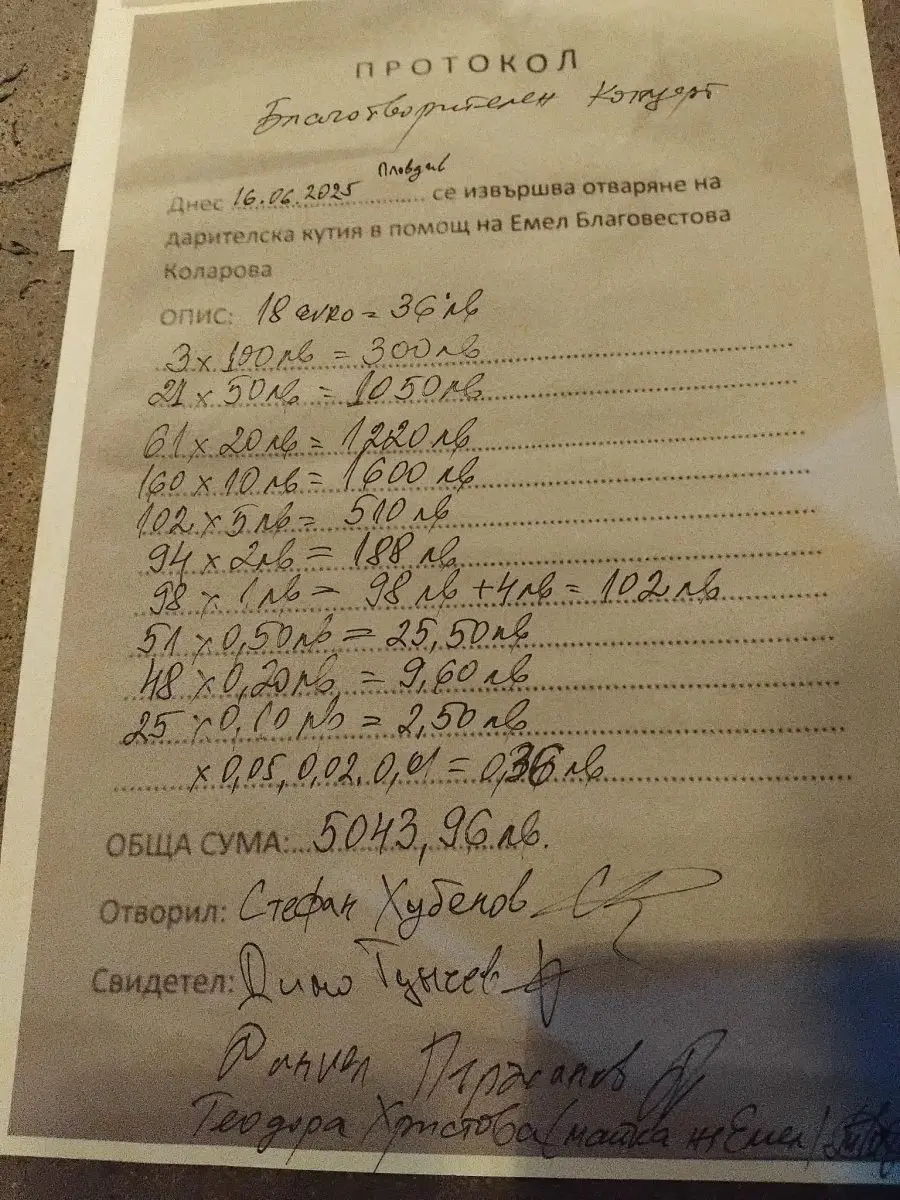 ПРОТОКОЛ
Благотворителен Концерт
Пловдив
Днес 16.06.2025 се извършва отваряне на
дарителска кутия в помощ на Емел Благовестова
Коларова
ОПИС: 18 евро = 36 лв
3 x 100 лв = 300 лв
21 x 50 лв = 1050 лв
61 x 20 лв = 1220 лв
160 x 10 лв = 1600 лв
102 x 5 лв = 510 лв
94 x 2 лв = 188 лв
98 x 1 лв = 98 лв + 4 лв = 102 лв
51 x 0,50 лв = 25,50 лв
48 x 0,20 лв = 9,60 лв
25 x 0,10 лв = 2,50 лв
x 0,05, 0,02, 0,01 = 0,36 лв
ОБЩА СУМА: 5043,96 лв.
Отворил: Стефан Хубенов
Свидетел: Дино Тунчев
Теодора Христова (майка на Емел)